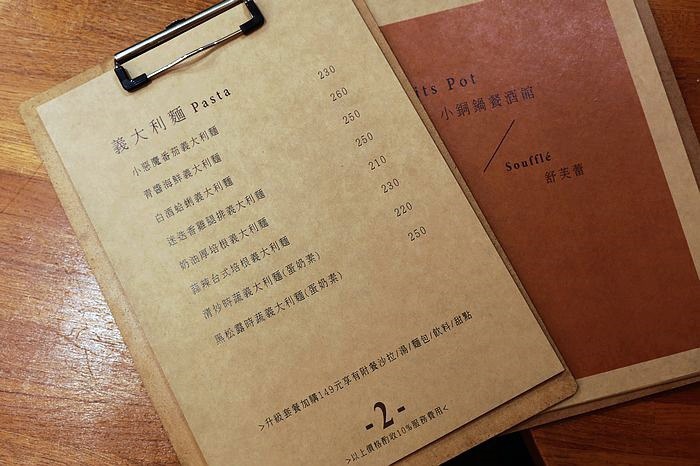 義大利麵 Pasta
小惡魔番茄義大利麵 230
青醬海鮮義大利麵 260
白酒蛤蜊義大利麵 250
迷迭香雞腿排義大利麵 250
奶油厚培根義大利麵 210
蒜辣台式培根義大利麵 230
清炒時蔬義大利麵(蛋奶素) 220
黑松露時蔬義大利麵(蛋奶素) 250
>升級套餐加購149元享有附餐沙拉/湯/麵包/飲料/甜點
-2-
>以上價格酌收10%服務費用<
its Pot
小銅鍋餐酒館
Soufflé
舒芙蕾